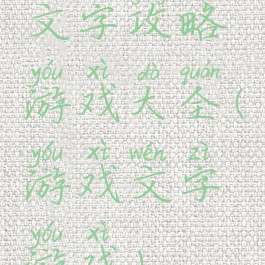 文字攻略
yóu xì dà quán
游戏大全(
yóu xì wén zì
游戏文字
yóu xì
游戏)